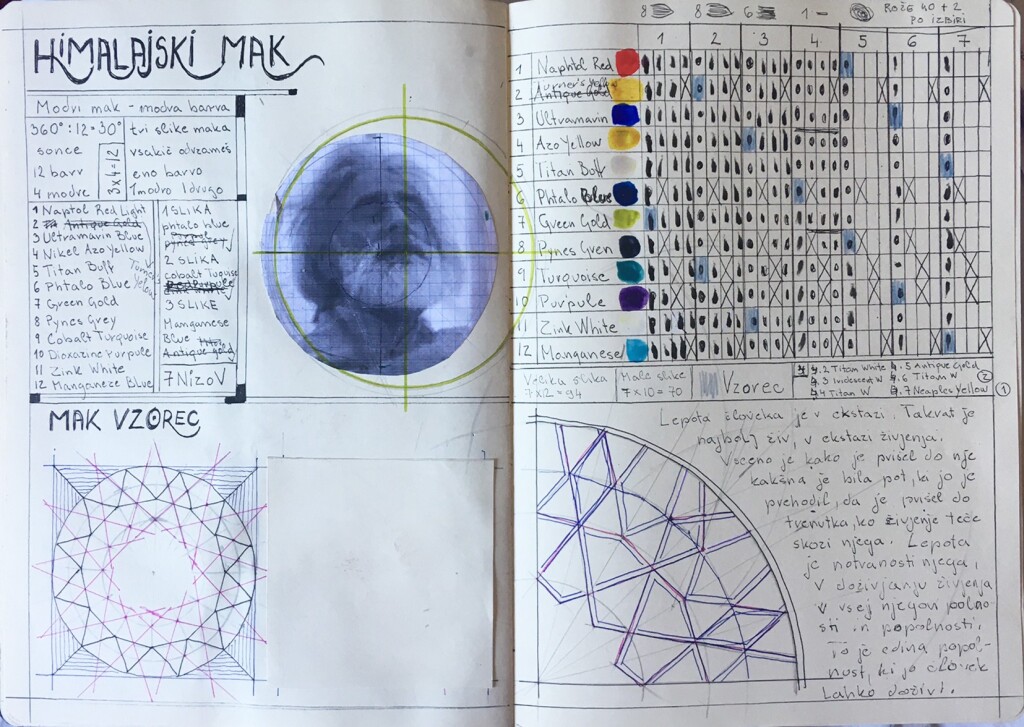 HIMALAJSKI MAK
Modri mak - modra barva
360° : 12 = 30°
sonce
12 barv
4 modre
3x4=12
tri slike maka
vsakič odvzameš
eno barvo
1 modro 1 drugo
1 Naptol Red Light
2 Antique Gold
3 Ultramarin Blue
4 Nikel Azo Yellow
5 Titan Buff
6 Phtalo Blue
7 Green Gold
8 Pynes Grey
9 Cobalt Turquoise
10 Dioxazine Purpule
11 Zink White
12 Manganeze Blue
Turners Yellow
1 SLIKA
phtalo blue
pynes grey
2 SLIKA
cobalt Tuqoise
3 SLIKE
Manganese
Blue
Antique gold
7 NIZOV
MAK VZOREC
8 8 6 1 - ROŽE 40 + 2
PO IZBIRI
1 2 3 4 5 6 7
1 Naphtol Red
2 Turner's Yellow
Antique Gold
3 Ultramarin
4 Azo Yellow
5 Titan Buff
6 Phtalo Blue
7 Green Gold
8 Pynes Green
9 Turquoise
10 Purpule
11 Zink White
12 Manganese
Velika slika
7x12=94
Male slike
7x10=70
Vzorec
4.2 Titan White
4.3 Iridescent W
4.4 Titan W
4.5 Antique Gold
4.6 Titan W
4.7 Neaples Yellow
2
1
Lepota človeka je v ekstazi. Takrat je
najbolj živ, v ekstazi življenja.
Vseeno je kako je prišel do nje
kakšna je bila pot, ki jo je
prehodil, da je prišel do
trenutka, ko življenje teče
skozi njega. Lepota
je notranosti njega,
v doživjanju življenja
v vsej njegovi polno-
sti in popolnosti.
To je edina popol-
nost, ki jo človek
lahko doživi.